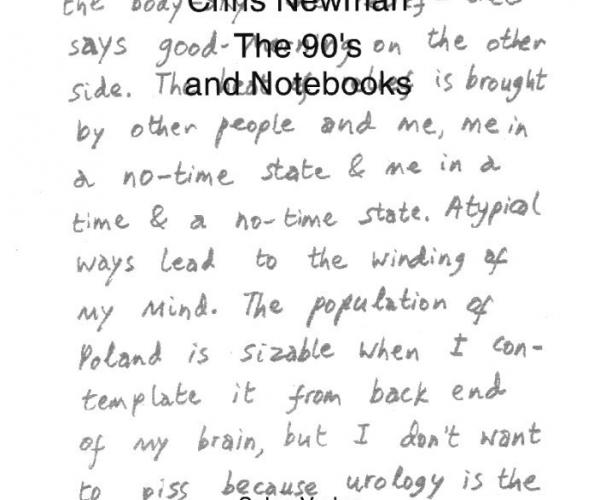 the body
Chris Newman
says good-morning on the other
The 90's
side. The heat of relief is brought
and Notebooks
by other people and me, me in
a no-time state & me in a
time & a no-time state. Atypical
ways lead to the winding of
my mind. The population of
Poland is sizable when I con-
template it from back end
of my brain, but I don't want
to piss because urology is the